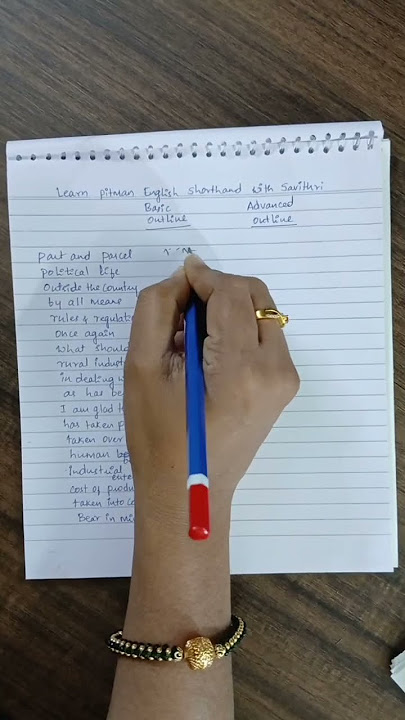 Learn pitman English shorthand with Savithri
Basic Advanced
outline outline
part and parcel
political life
outside the country
by all means
rules & regulat
once again
What shoul
rural indust
in dealing w
as has be
I am glad t
has taken p
taken over
human
Industrial
cost of produ
taken into co
Bear in mi